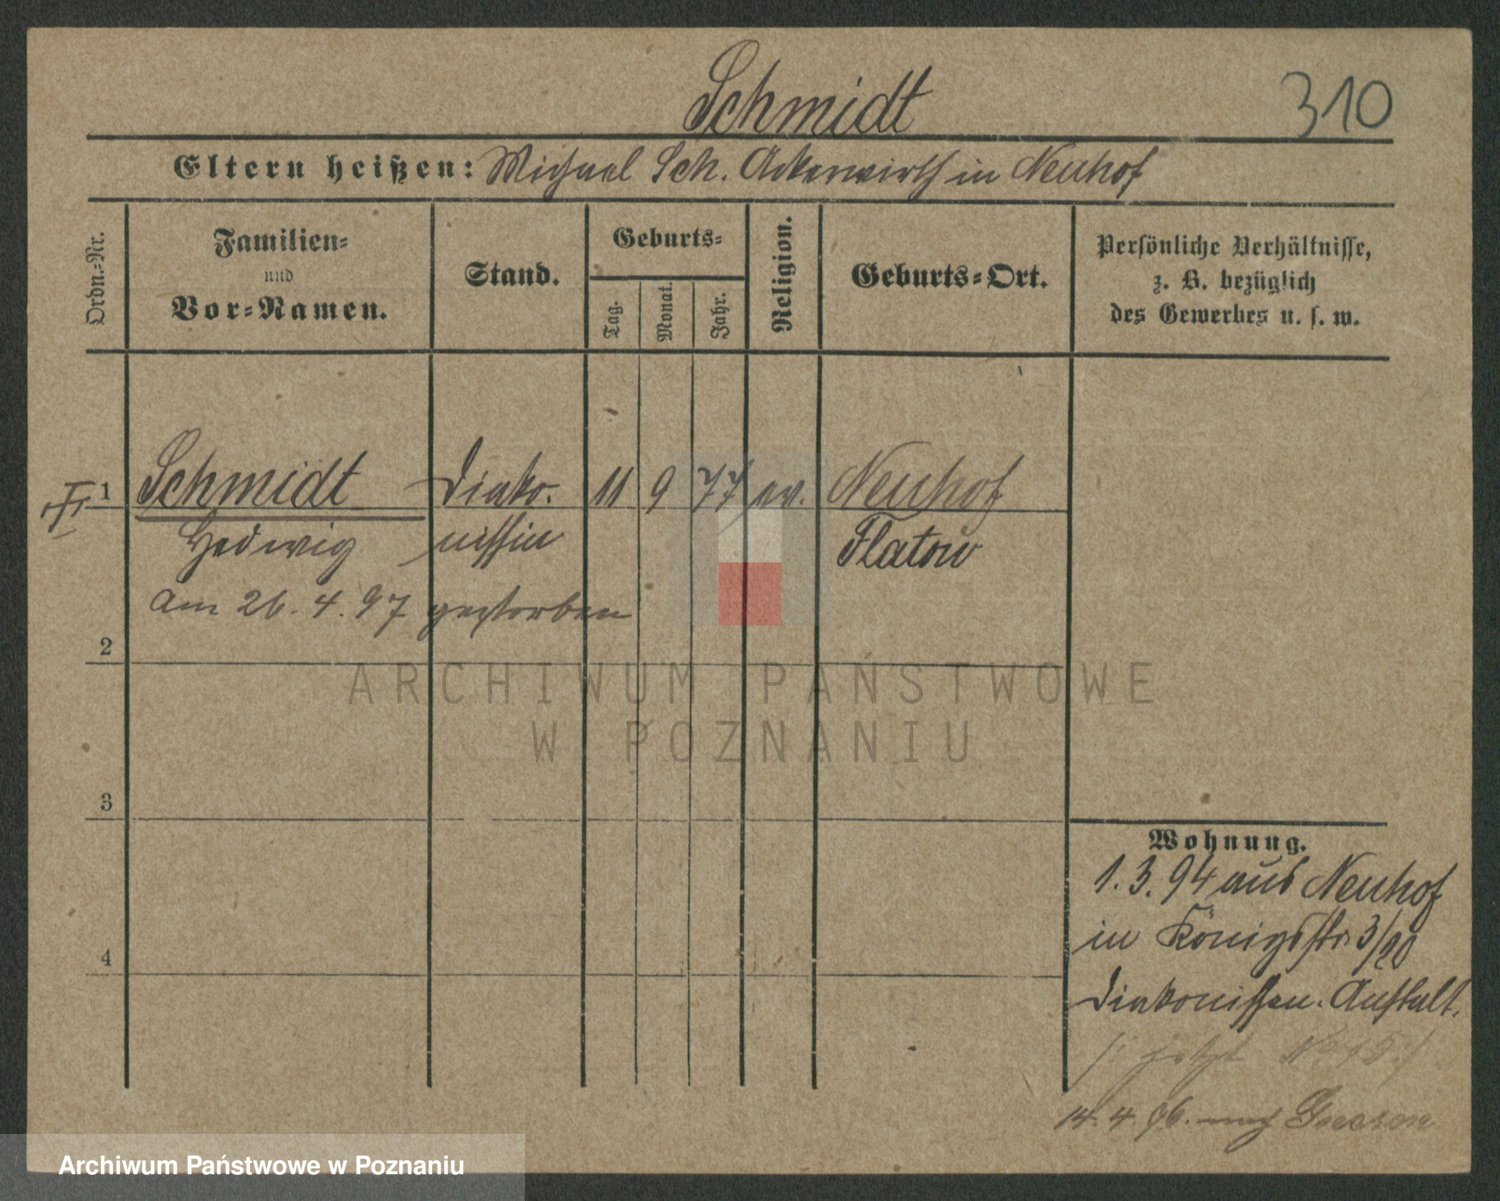 Schmidt
310
Eltern heißen: Michael Sch. Ackerwirth in Neuhof
Ordn.-Nr.
Familien-
und
Vor-Namen.
Stand.
Geburts-
Tag.
Monat.
Jahr.
Religion.
Geburts-Ort.
Persönliche Verhältnisse,
z. B. bezüglich
des Gewerbes u. s. w.
1 Schmidt Diako- 11 9 77 ev. Neuhof
Hedwig nissin Flatow
am 26. 4. 97 gestorben
2
ARCHIWUM PAŃSTWOWE
W POZNANIU
3
Wohnung.
1. 3. 94 aus Neuhof
in Königsstr. 3/20
4
Diakonissen-Anstalt.
jetzt No 15
14. 4. 96. nach
Archiwum Państwowe w Poznaniu